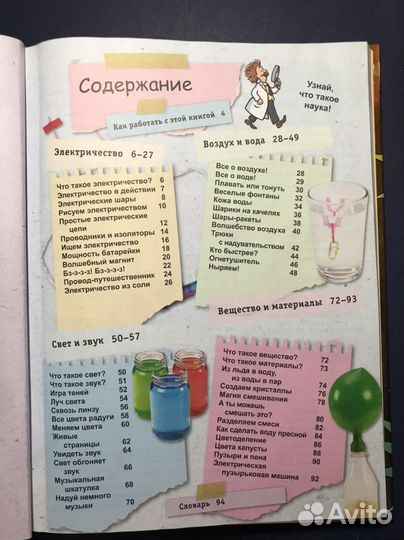 Содержание
Узнай,
что такое
наука!
Как работать с этой книгой 4
Электричество 6–27
Что такое электричество? 6
Электричество в действии 7
Электрические шары 8
Рисуем электричеством 10
Простые электрические
цепи 12
Проводники и изоляторы 14
Ищем электричество 16
Мощность батарейки 18
Волшебный магнит 20
Бз-з-з-з! Бз-з-з-з! 22
Провод-путешественник 24
Электричество из соли 26
Воздух и вода 28–49
Все о воздухе! 28
Все о воде! 29
Плавать или тонуть 30
Веселые фонтаны 30
Кожа воды 34
Шарики на качелях 36
Шары-ракеты 38
Волшебство воздуха 40
Трюки
с надувательством 42
Кто быстрее? 44
Огнетушитель 46
Ныряем! 48
Свет и звук 50–57
Что такое свет? 50
Что такое звук? 51
Игра теней 52
Луч света 54
Сквозь линзу 56
Все цвета радуги 58
Меняем цвета 60
Живые
страницы 62
Увидеть звук 64
Свет обгоняет
звук 66
Музыкальная
шкатулка 68
Надуй немного
музыки 70
Вещество и материалы 72–93
Что такое вещество? 72
Что такое материалы? 73
Из льда в воду,
из воды в пар 74
Создаем кристаллы 76
Магия смешивания 78
А ты можешь
смешать это? 80
Разделяем смеси 82
Как сделать воду пресной 84
Цветоделение 86
Цвета капусты 88
Пузыри и пена 90
Электрическая
пузырьковая машина 92
Словарь 94
Avito